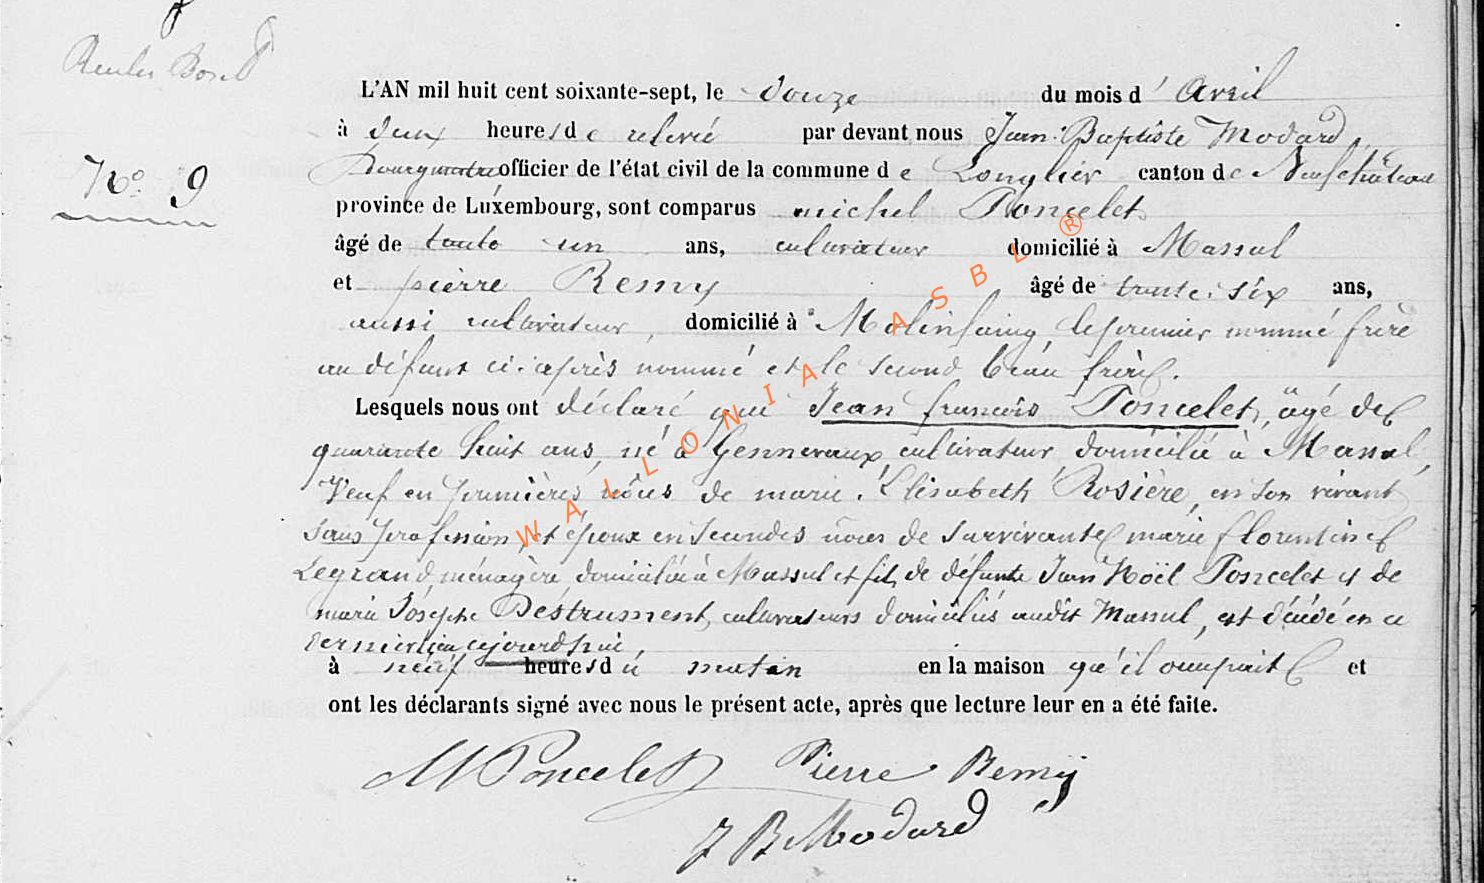 L'AN mil huit cent soixante-sept, le douze du mois d'Avril
à deux heures de relevé par devant nous Jean-Baptiste Modard,
Bourgmestre officier de l'état civil de la commune de Longlier canton de Neufchâteau
province de Luxembourg, sont comparus michel Poncelet
âgé de trente un ans, cultivateur domicilié à Massul
et pierre Remy âgé de trente-six ans,
aussi cultivateur, domicilié à Molinfaing, le premier nommé frère
au défunt ci-après nommé et le second beau frère.
Lesquels nous ont déclaré que Jean françois Poncelet, âgé de
quarante huit ans, né à Gennevaux, cultivateur domicilié à Massul,
Veuf en premières nôces de marie-Elisabeth Rosière, en son vivant
sans profession, et époux en secondes nôces de survivante marie florentine
Legrand, ménagère domiciliée à Massul et fils de défunts Jean Noël Poncelet et de
marie Joséphe Déstrument, cultivateurs domiciliés audit Massul, est décédé en ce
dernier lieu cejourd'hui
à neuf heures du matin en la maison qu'il occupait et
ont les déclarants signé avec nous le présent acte, après que lecture leur en a été faite.
M Poncelet Pierre Remy
J B Modard
No 9
WALLONIA ASBL ®